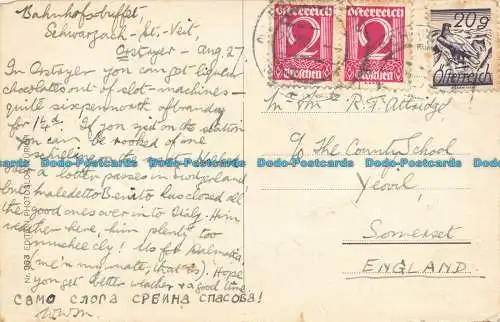 Bahnhofsbuffet
Schwarzach-St.-Veit,
Aug. 27
In you can get liqueur
chocolates out of slot-machines –
quite sixpennorth of brandy
for 1½d. If you sit on the station
you can be of one
passes in Switzerland
maledetto Benito has closed all
the good ones over into Italy. Him
here, him plenty too
much! Us for Dalmatia,
(me 'n my mate, that is). Hope
you get better weather & a good time.
САМО СЛОГА СРБИНА СПАСОВА!
WWM.
österreich
2
Groschen
österreich
2
Groschen
20 g
Österreich
R. T. Attridge
The County School
Yeovil
Somerset
ENGLAND.
Nr. 963
Dodo-Postcards.com Dodo-Postcards.com Dodo-Postcards.com Dodo-Postcards.com